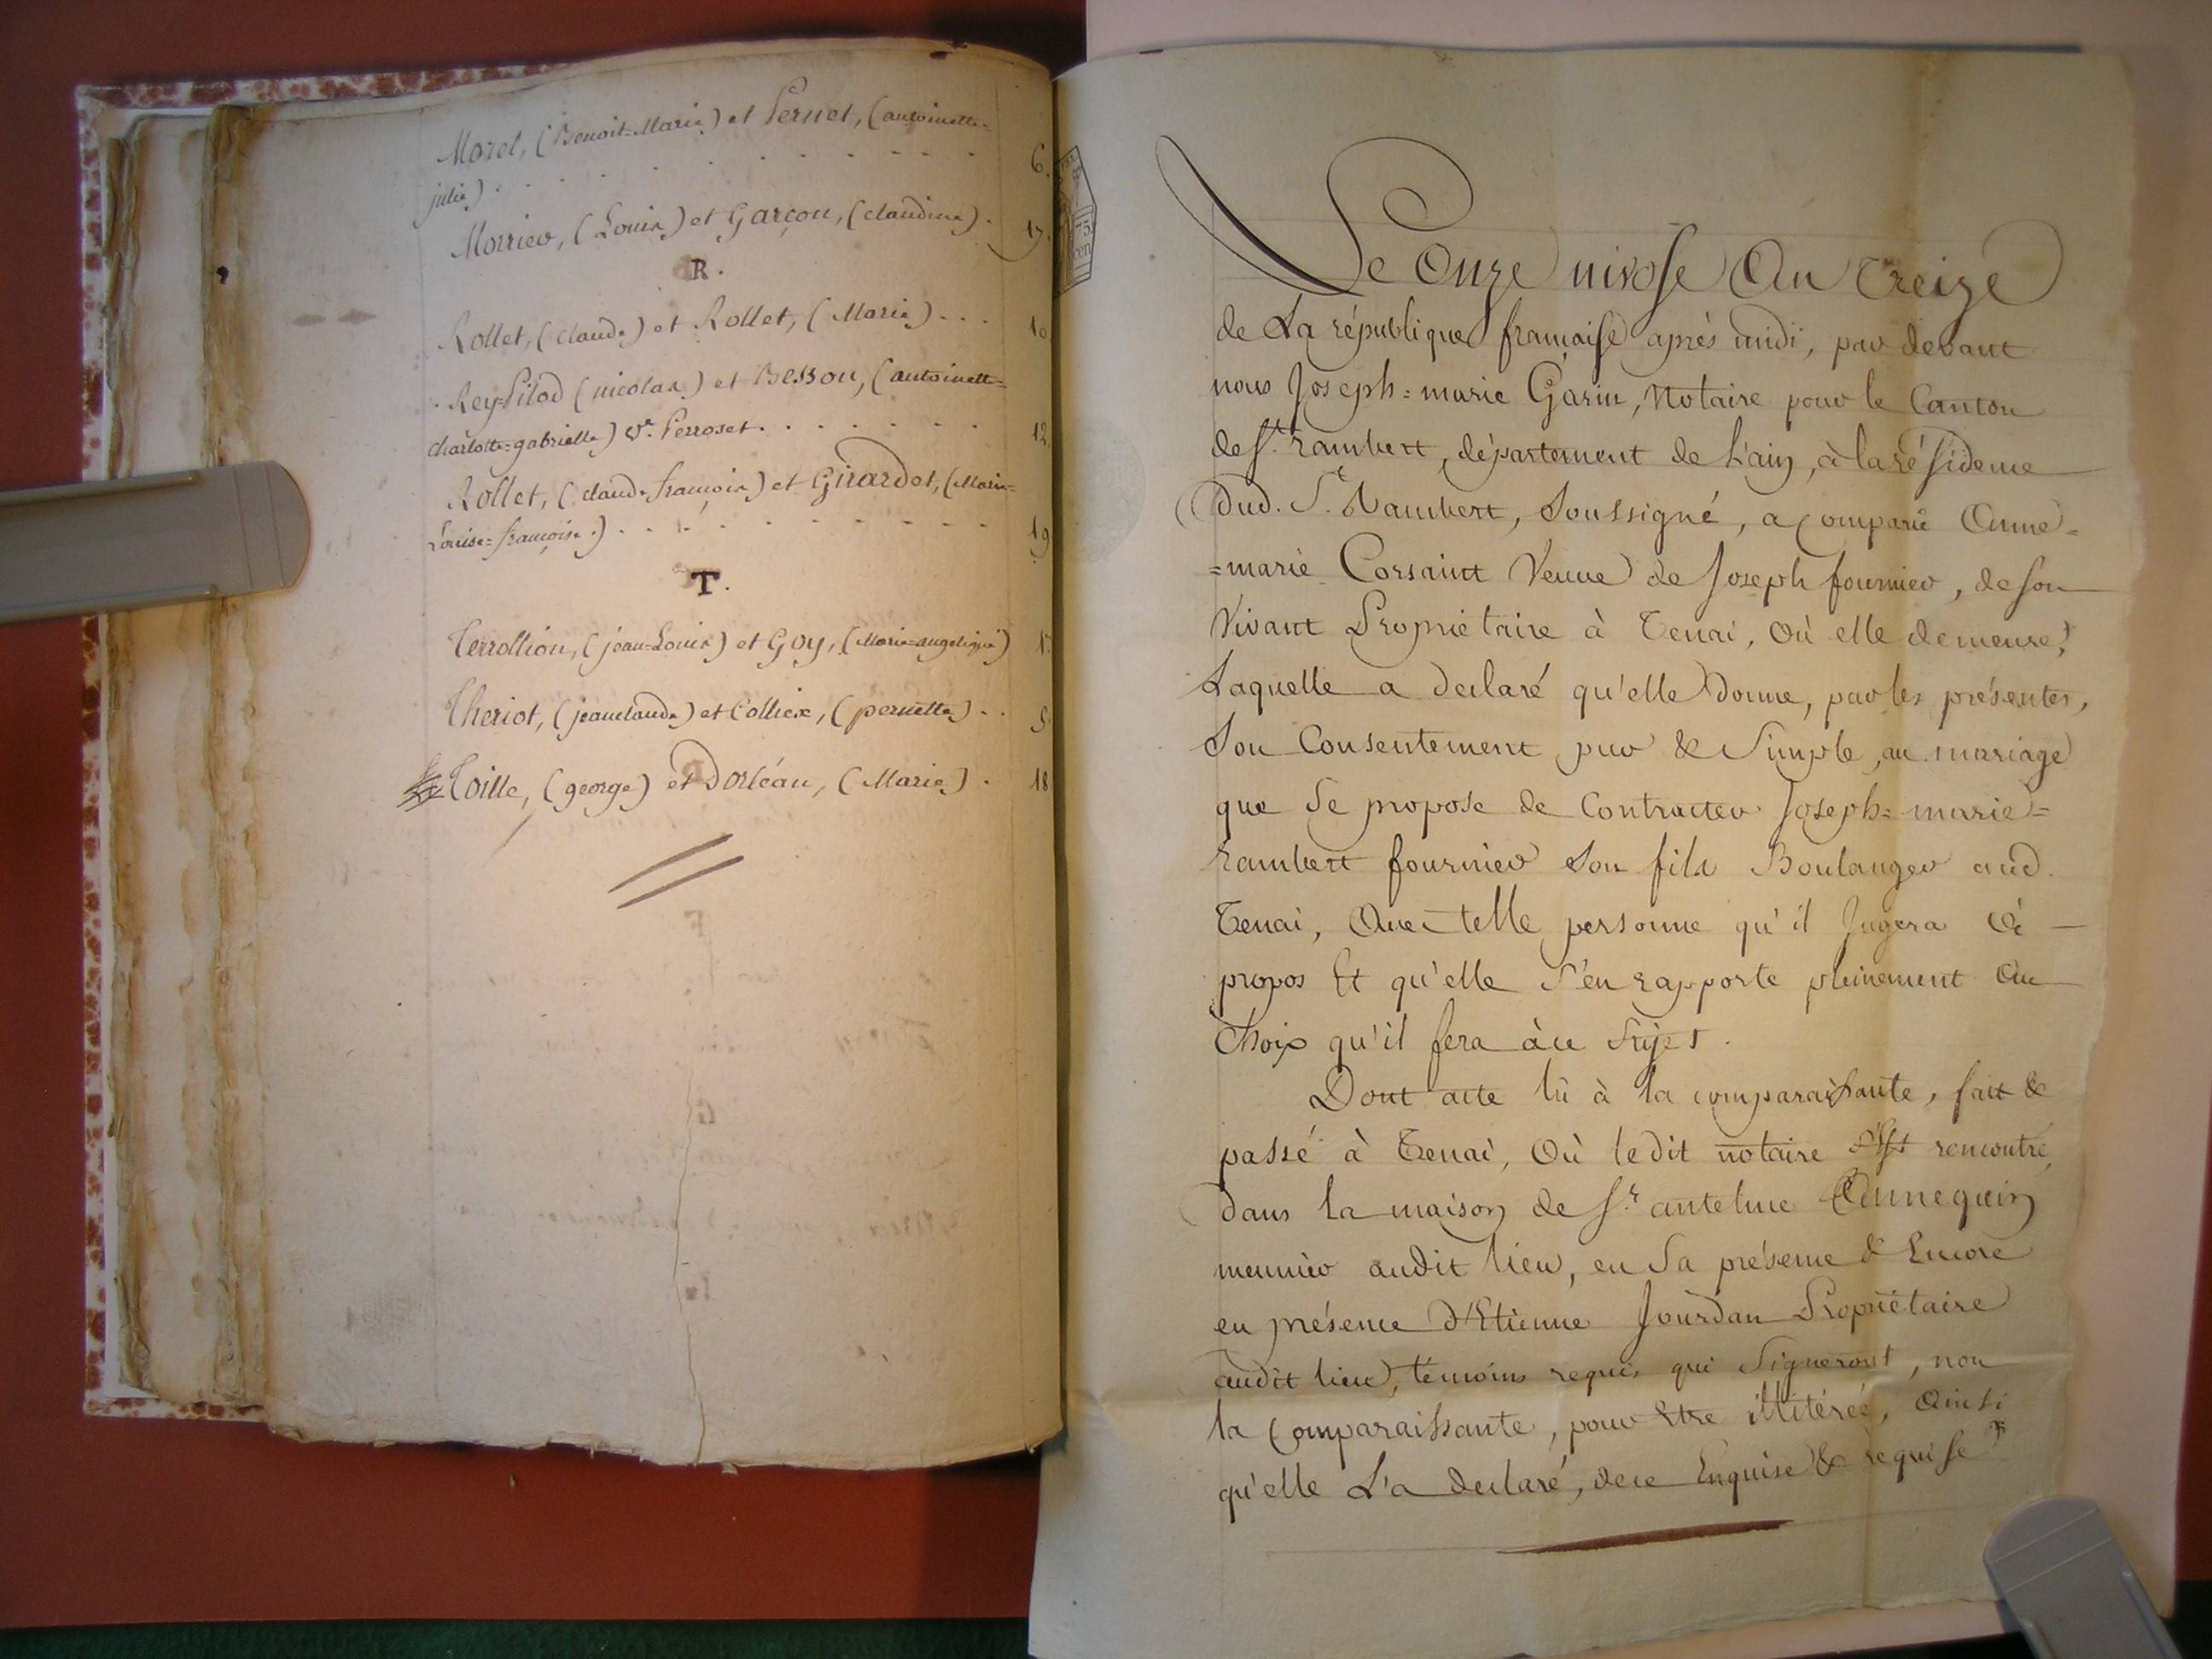 Morel, (Benoit=Marie) et Pernet, (antoinette=
julie) . . . . . . . . . . 6.
Morrier, (Louis) et Garçon, (claudine). 17.
R.
Rollet, (claude) et Rollet, (Marie) . . . 10
Rey-Pilod (nicolas) et Besson, (antoinette=
charlotte=gabrielle) Ve. Perroset . . . . . . . 12.
Rollet, (claude françois) et Girardet, (Marie=
Louise=françoise.) . . . . . . . . . . 19
T.
Terrollion, (jean=Louis) et Goy, (Marie=angelique)
Theriot, (jeanclaude) et Colliex, (pernette) . .
Toille, (george) et Dorléan, (Marie) . 18
75
cen
Le Onze nivose An treize
de La république française après midi, par devant
nous Joseph=marie Garin, Notaire pour le Canton
de St. rambert, département de L'ain, à la résidence
dud. St. Rambert, Soussigné, a comparu Anne=
=marie Corsaint Veuve de Joseph fournier, de son
Vivant Propriétaire à Tenai, où elle demeure,
Laquelle a déclaré qu'elle donne, par les présentes,
Son Consentement pur & Simple, au mariage
que Se propose de Contracter Joseph=marie=
rambert fournier Son fils Boulanger aud.
Tenai, Avec telle personne qu'il Jugera à
propos Et qu'elle S'en rapporte pleinement Au
Choix qu'il fera à ce Sujet.
Dont acte lu à la comparaissante, fait &
passé à Tenai, Où ledit notaire s'est rencontré,
dans la maison de Sr. antelme Annequin
meunier audit lieu, en Sa présence & Encore
en présence d'Etienne Jourdan Propriétaire
audit lieu, témoins requis qui Signeront, non
la Comparaissante, pour Etre illitérée, Ainsi
qu'elle L'a déclaré, de ce Enquise & requise